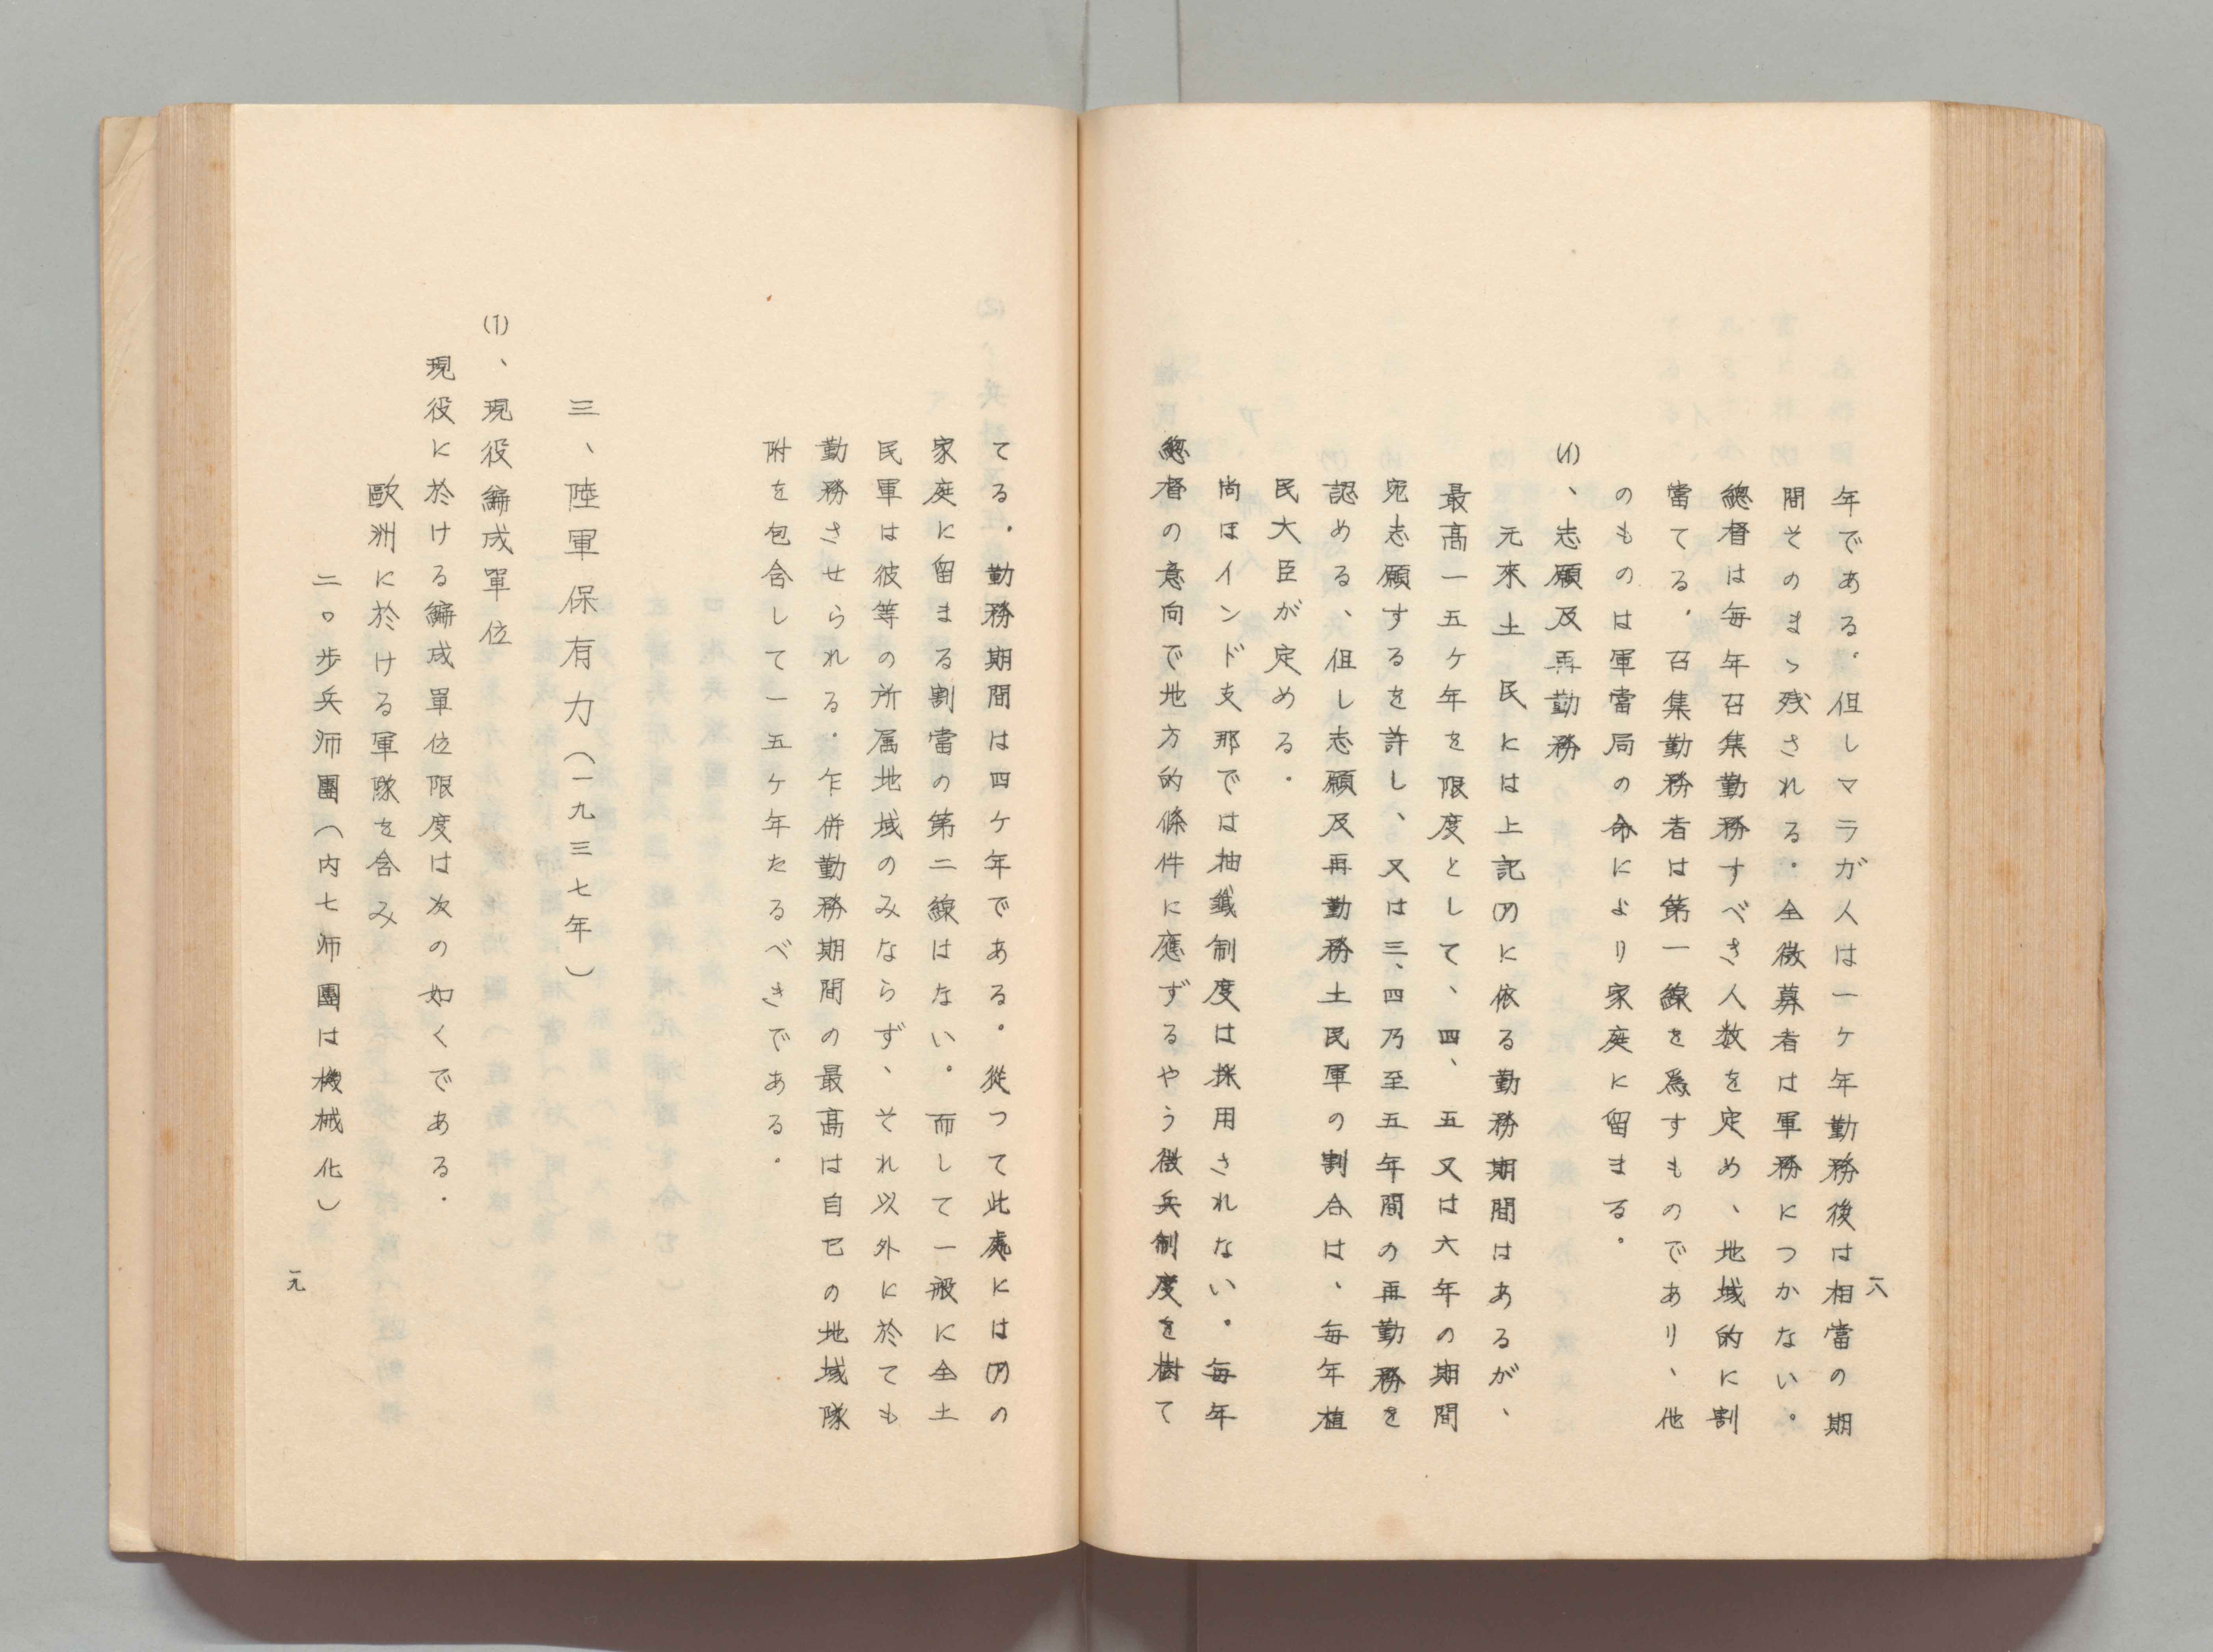 一八
年である。但しマラガ人は一ヶ年勤務後は相當の期
間そのまゝ残される。全徴募者は軍務につかない。
總督は毎年召集勤務すべき人数を定め、地域的に割
當てる。召集勤務者は第一線を爲すものであり、他
のものは軍當局の命により家庭に留まる。
(イ)、志願及再勤務
元來土民には上記(ア)に依る勤務期間はあるが、
最高一五ヶ年を限度として、四、五又は六年の期間
宛志願するを許し、又は三、四乃至五年間の再勤務を
認める、但し志願及再勤務土民軍の割合は、毎年植
民大臣が定める。
尚ほインド支那では抽籤制度は採用されない。毎年
總督の意向で地方的條件に應ずるやう徴兵制度を樹て
てる。勤務期間は四ヶ年である。從つて此處には(ア)の
家庭に留まる割當の第二線はない。而して一般に全土
民軍は彼等の所属地域のみならず、それ以外に於ても
勤務させられる。乍併勤務期間の最高は自己の地域隊
附を包含して一五ヶ年たるべきである。
三、陸軍保有力(一九三七年)
(1)、現役編成單位
現役に於ける編成單位限度は次の如くである。
歐洲に於ける軍隊を含み
二〇步兵師團(内七師團は機械化)
一九